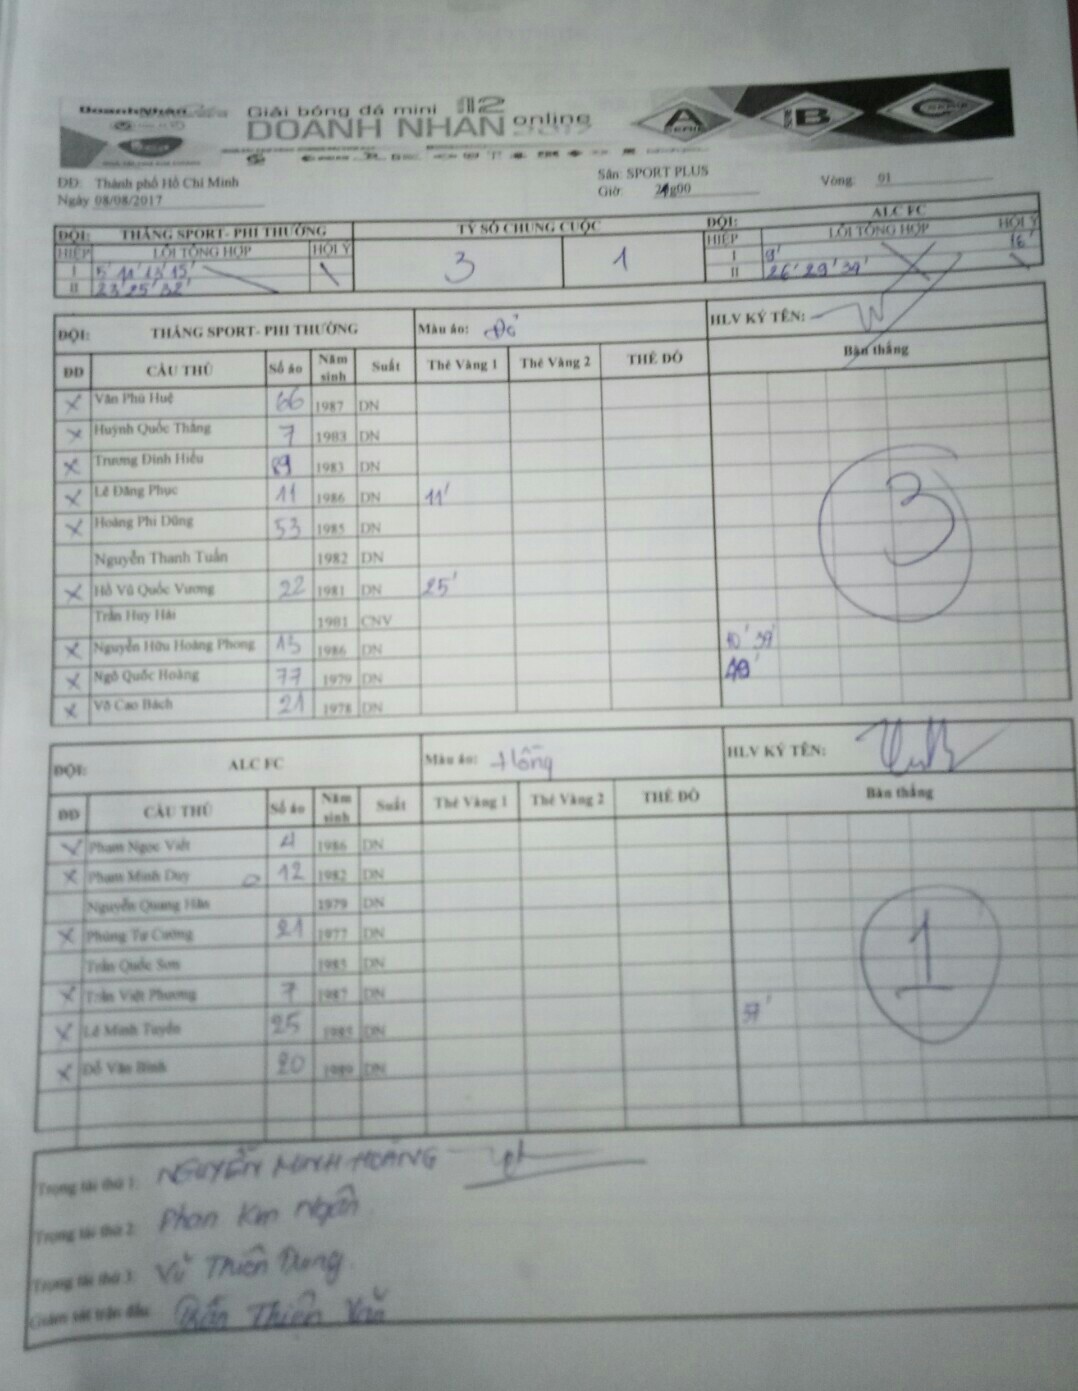 Giải bóng đá mini 12
DOANH NHÂN online 2017
A SERIE B C SERIE
ĐĐ: Thành phố Hồ Chí Minh Sân: SPORT PLUS
Ngày 08/08/2017 Giờ: g00 Vòng: 01
ĐỘI: THẮNG SPORT- PHI THƯỜNG TỶ SỐ CHUNG CUỘC ĐỘI: ALC FC
HIỆP LỖI TỔNG HỢP HỘI Ý HIỆP LỖI TỔNG HỢP HỘI Ý
I 5' 11' 13' 15' 3 1 I 9' 16'
II 23' 25' 32' II 26' 29' 39'
ĐỘI: THẮNG SPORT- PHI THƯỜNG Màu áo: Đỏ HLV KÝ TÊN:
ĐD CẦU THỦ Số áo Năm sinh Suất Thẻ Vàng 1 Thẻ Vàng 2 THẺ ĐỎ Bàn thắng
x Văn Phú Huệ 66 1987 DN
x Huỳnh Quốc Thắng 7 1983 DN
x Trương Đình Hiếu 89 1983 DN
x Lê Đăng Phục 11 1986 DN 11'
x Hoàng Phi Dũng 53 1985 DN
Nguyễn Thanh Tuấn 1982 DN
x Hồ Vũ Quốc Vương 22 1981 DN 25'
Trần Huy Hải 1981 CNV
x Nguyễn Hữu Hoàng Phong 15 1986 DN 10' 39'
x Ngô Quốc Hoàng 77 1979 DN
x Võ Cao Bách 21 1978 DN
3
ĐỘI: ALC FC Màu áo: Hồng HLV KÝ TÊN:
ĐD CẦU THỦ Số áo Năm sinh Suất Thẻ Vàng 1 Thẻ Vàng 2 THẺ ĐỎ Bàn thắng
x Phạm Ngọc Viết 4 1986 DN
x Phạm Minh Duy 12 1982 DN
Nguyễn Quang Hân 1979 DN
x Phùng Tự Cường 21 1977 DN
Trần Quốc Sơn DN
x Trần Việt Phương 7 1987 DN
x Lê Minh Tuyển 25 DN 37'
x Đỗ Văn Bình 20 1989 DN
1
Trọng tài thứ 1: NGUYỄN MINH HOÀNG
Trọng tài thứ 2: Phan Kim Ngân
Trọng tài thứ 3: Vũ Thiên Dung
Giám sát trận đấu: Thiên